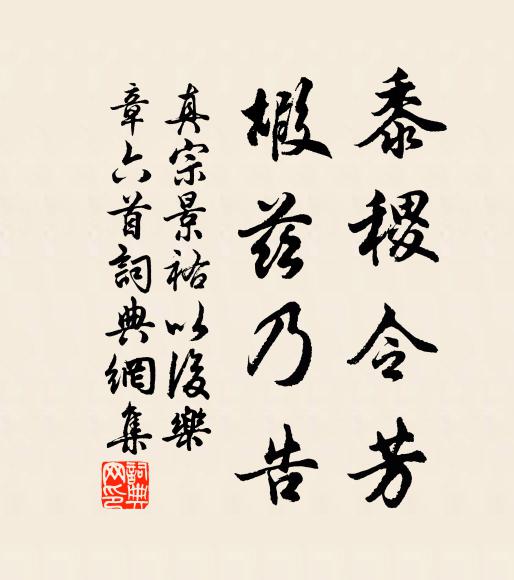 黍稷令芳
嘏茲乃告
真宗景祐以後樂
章六首詞典網集
詞典
网印